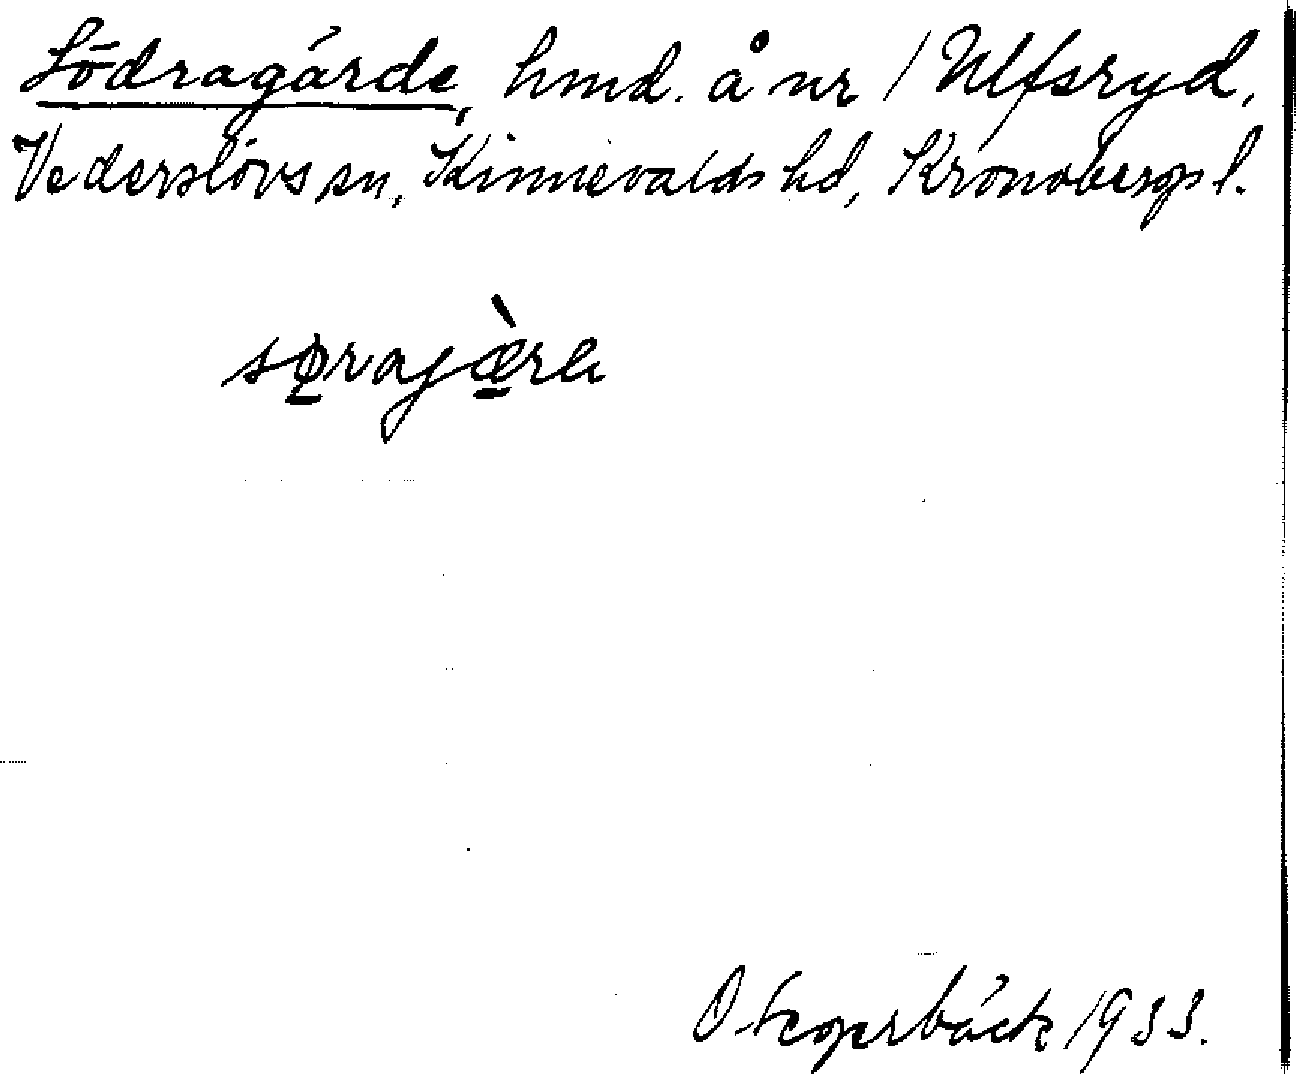 Södragärde, hmd. å nr 1 Ulfsryd,
Vederslövs sn, Kinnevalds hd, Kronobergs l.
sø̱rajæ̱̀re
O. Hagerbäck 1933.